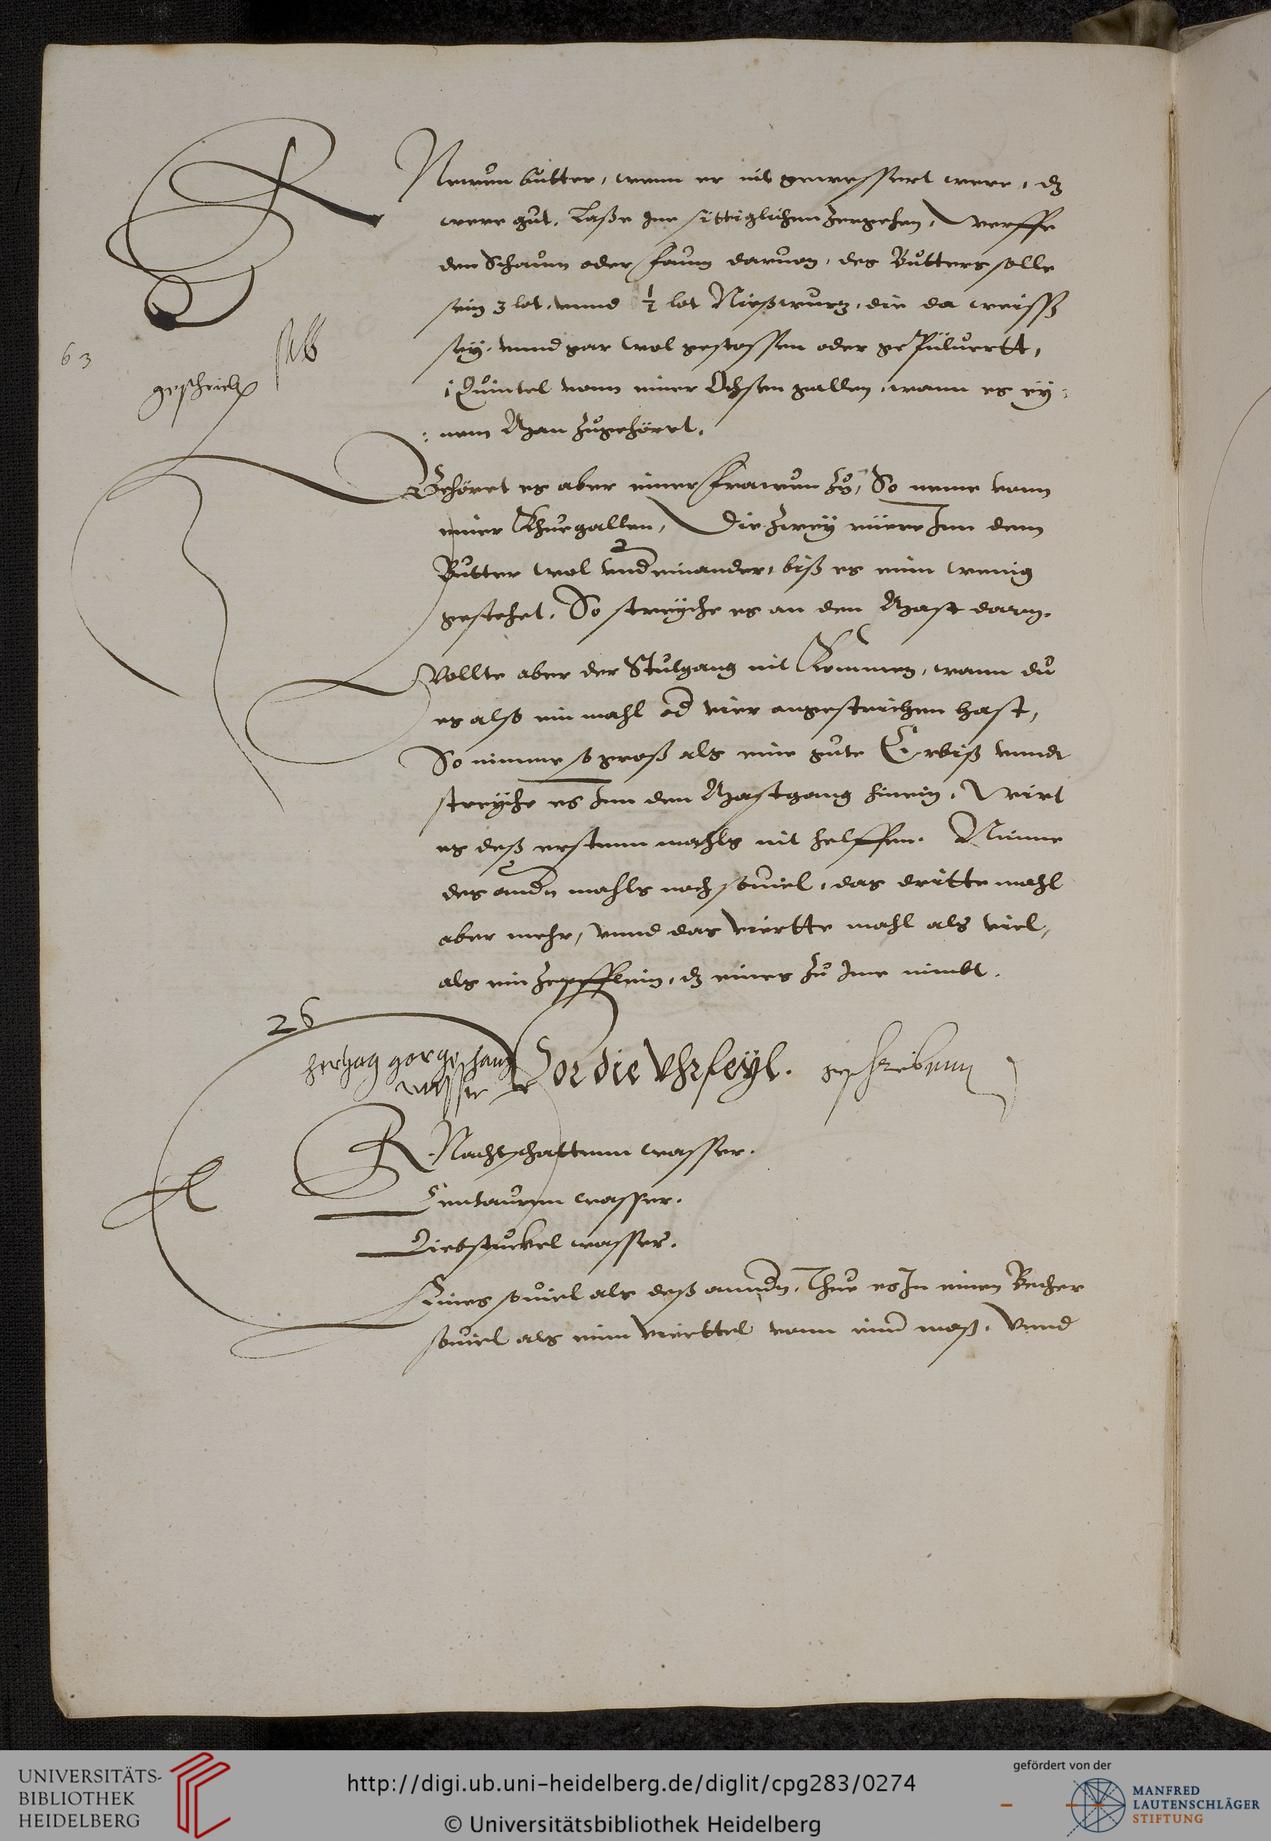 R Newen butter, wenn er nit gewessert were, dz
were gut. Laße Ine sittiglichen Zergehen, Werffe
den Schaum oder faum daruon, des Butters solle
sein 3 lot, vnnd ½ lot Nießwurz, die da weiss
63
sey, vnnd gar wol gestossen oder gepuluertt,
geschrieben
1 Quintel vonn einer Ochsen gallen, wann es ey:
:nem Man Zugehöret.
Gehöret es aber einer frawen Zu, So neme vonn
einer Khuegallen, Die Zwey rüere Inn dem
Butter wol vndeinander, biß es einn wenig
gestehet. So streyche es an den Mast darm.
Wollte aber der Stulgang nit Kommen, wann du
es also ein mahl od vier angestrichen hast,
So nimme so groß als eine gute Erbiß vnndt
streyche es Inn den Mastgang hinein, Wirt
es deß erstenn mahls nit helffen. Nimme
des andn mahls noch souiel, das dritte mahl
aber mehr, vnnd das viertte mahl als viel,
als ein Zepfflein, dz eines Zu Ime nimbt.
26
herzog gorg hanß
wasser
Vor die Vhrfeyl. geschribenn
R Nachtschattenn wasser.
Centaurenn wasser.
Liebstuckel wasser.
Eines souiel als deß anndn, Thue es In einen Becher
souiel als einn vierttel vonn einr maß, Vnnd
UNIVERSITÄTS-
BIBLIOTHEK
HEIDELBERG
http://digi.ub.uni-heidelberg.de/diglit/cpg283/0274
© Universitätsbibliothek Heidelberg
gefördert von der
MANFRED
LAUTENSCHLÄGER
STIFTUNG